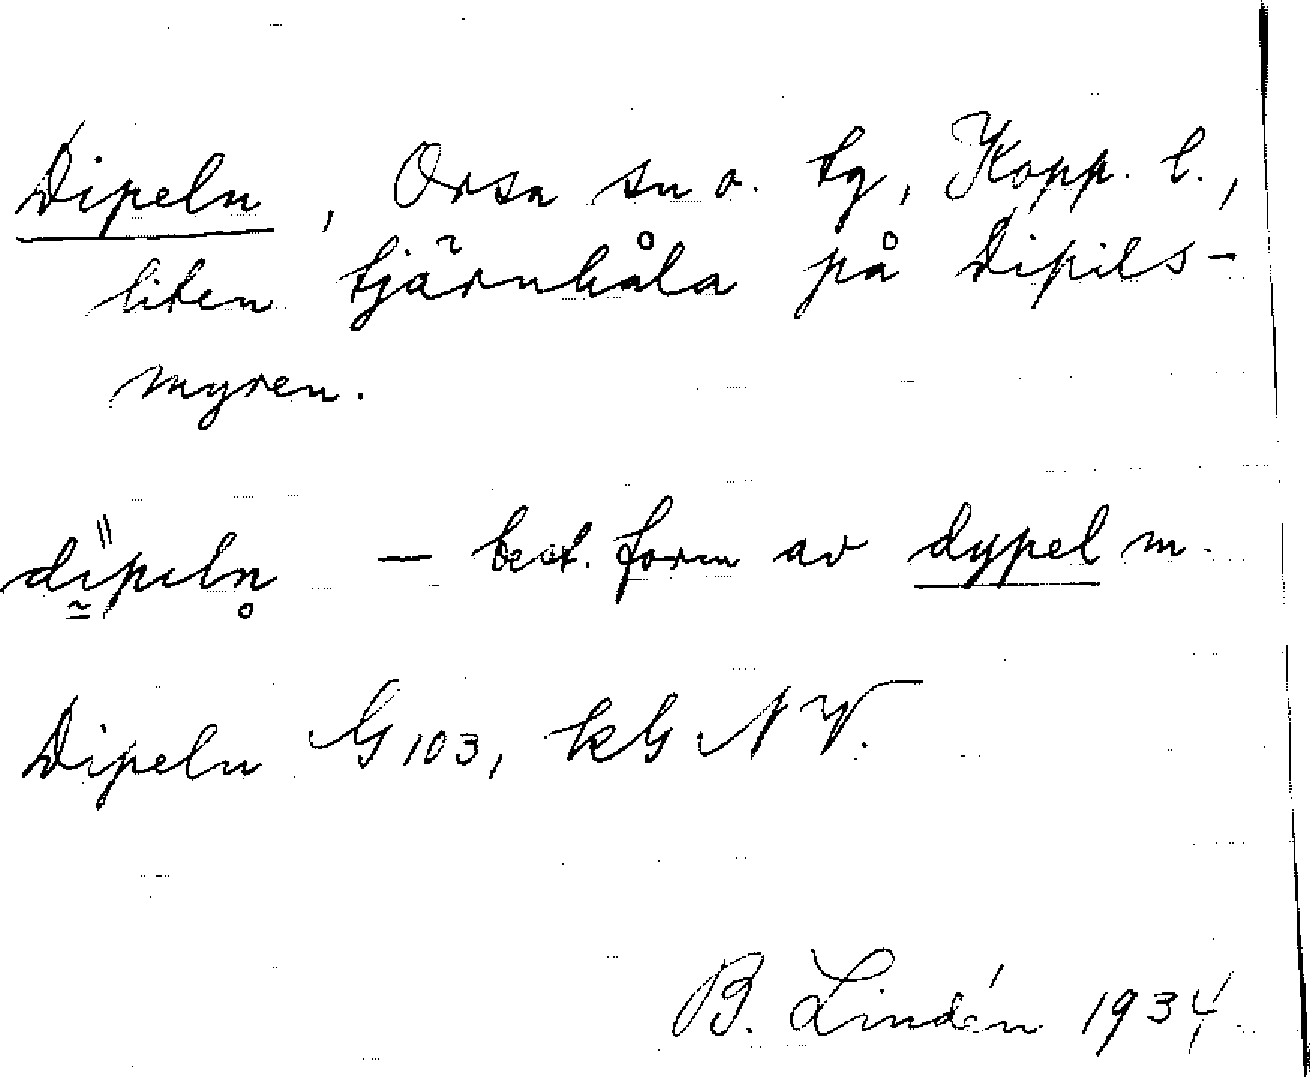 Dipeln, Orsa sn o. tg, Kopp. l.,
liten tjärnhåla på Dipils-
myren.
dipeln̥ — best. form av dypel m.
Dipeln G 103, kG NV.
B. Lindén 1934.